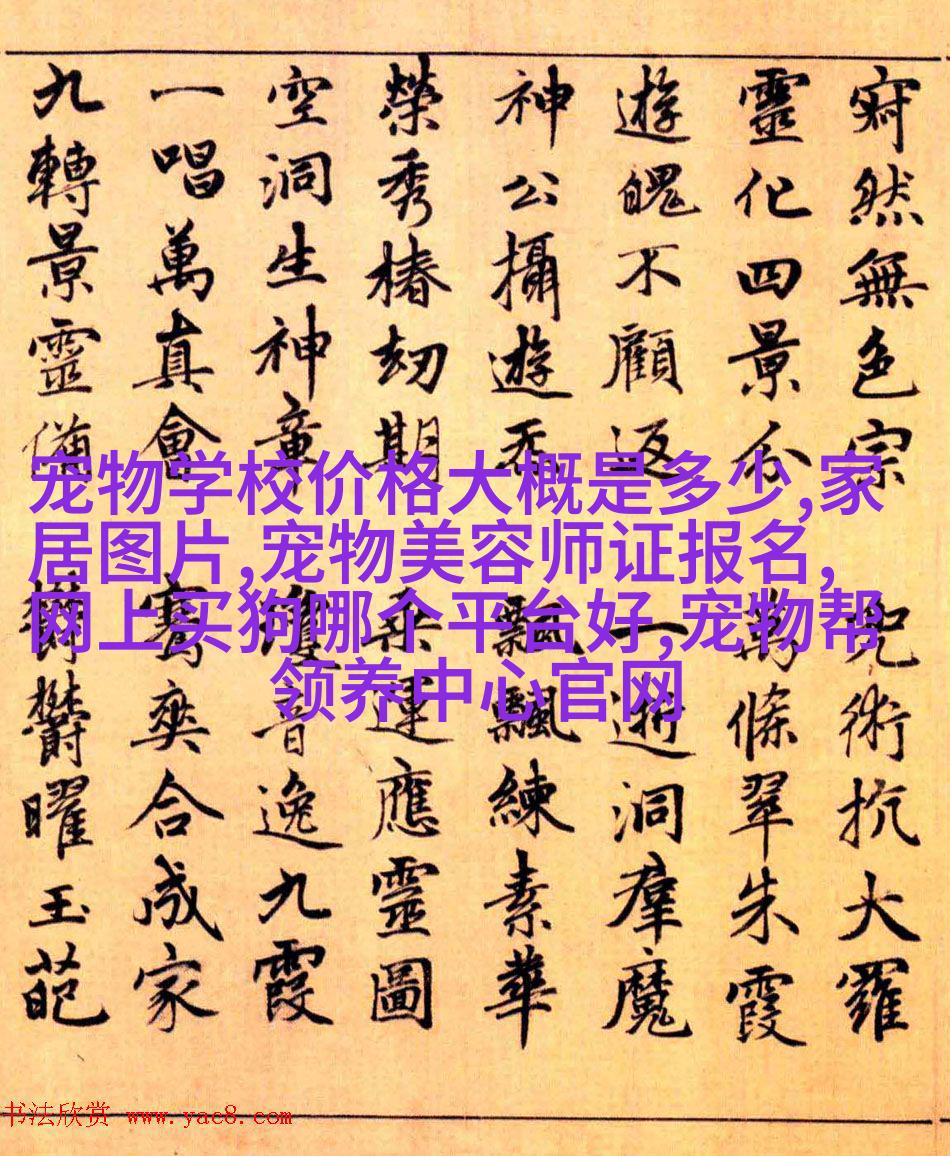 寂然無色宗 兜術抗大羅
靈化四景分 萬條翠朱霞
遊魄不顧返 一逝洞羣魔
神公攝遊炁 飄飄練素華
榮秀椿劫期 乘運應靈圖
空洞生神章 瓊音逸九霞
一唱萬真會 騫爽合成家
九轉景靈備 鬱鬱曜玉葩
宠物学校价格大概是多少,家
居图片,宠物美容师证报名,
网上买狗哪个平台好,宠物帮
领养中心官网
书法欣赏 www.yac8.com